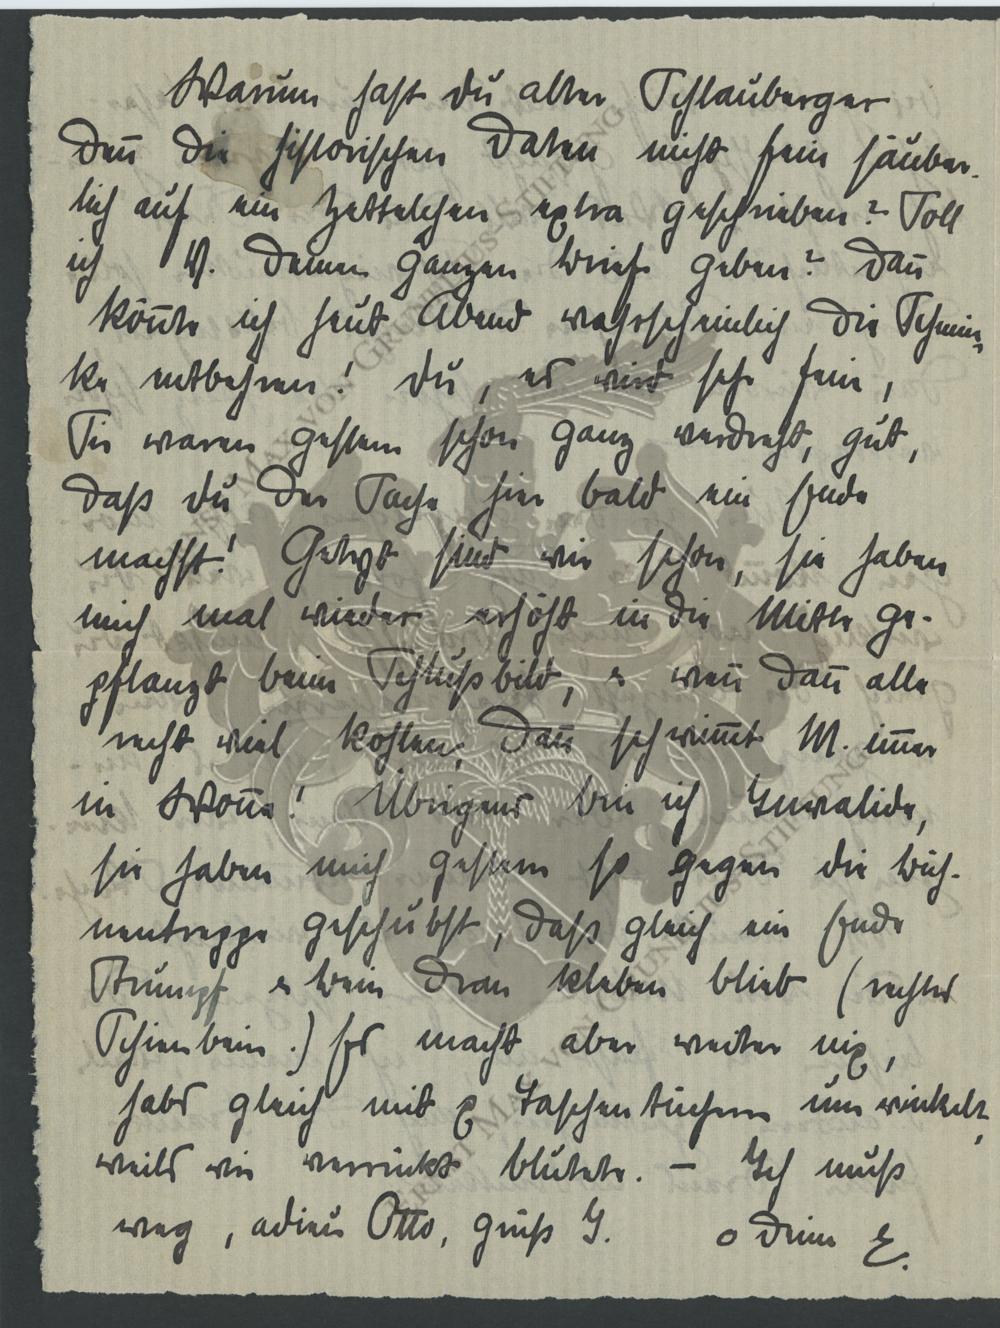 Warum hast du alter Schlauberger
deñ die historischen Daten nicht fein säuber-
lich auf ein Zettelchen extra geschrieben? Soll
ich V. Deinen ganzen Brief geben? Dañ
köñte ich heut Abend wahrscheinlich die Schmin-
ke entbehren! Du, es wird sehr fein,
Sie waren gestern schon ganz verdreht, gut,
daß du der Sache hier bald ein Ende
machst! Getypt sind wir schon, sie haben
mich mal wieder erhöht in die Mitte ge-
pflanzt beim Schlußbild, & weñ dañ alle
recht viel kohlen, dañ schwim̃t M. im̃er
in Woñe! Übrigens bin ich Invalide,
sie haben mich gestern so gegen die Büh-
nentreppe geschubst, daß gleich ein Ende
Strumpf & Bein dran kleben blieb (rechtes
Schienbein.) Es macht aber weiter nix,
habs gleich mit Taschentüchern umwickelt,
weils wie verrückt blutete. – Ich muß
weg, adieu Otto, gruß I. Dein E.
GRUNELIUS-STIFTUNG
MAX VON GRUNELIUS-STIFTUNG